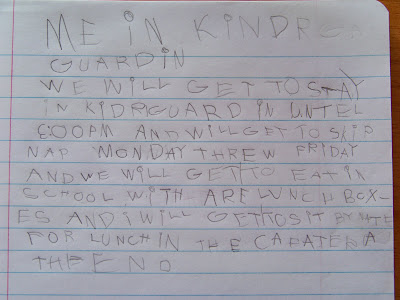 ME IN KINDRGA
GUARDIN
WE WILL GET TO STAY
IN KIDRGUARD IN UNTEL
6:00PM AND WILL GET TO SKIP
NAP MONDAY THREW FRIDAY
AND WE WILL GET TO EAT IN
SCHOOL WITH ARE LUNCH BOX-
ES AND I WILL GET TO SIT BY
FOR LUNCH IN THE CAPATERA
THE END